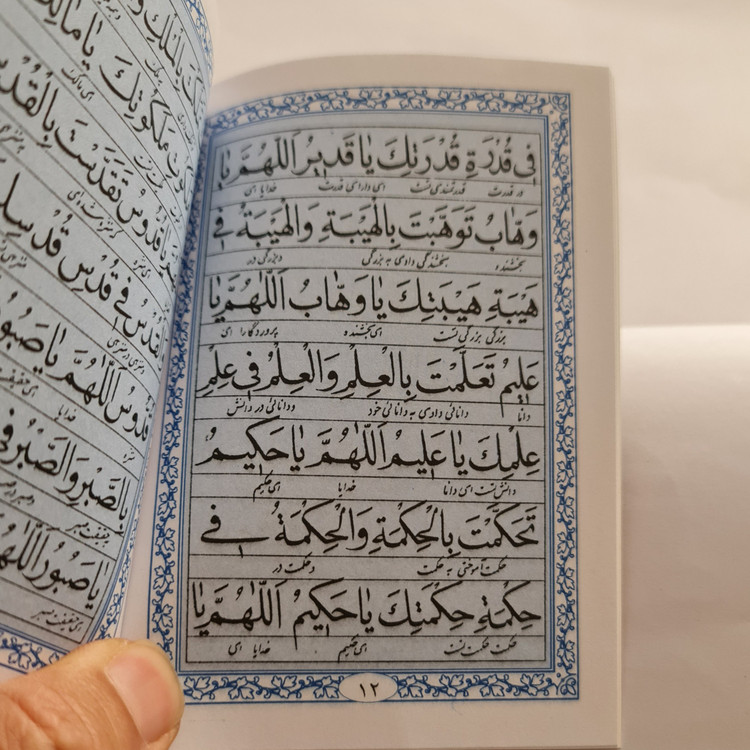 فِي قُدْرَةِ قُدْرَتِكَ يَا قَدِيرُ اَللّٰهُمَّ يَا
در قدرت قدرتمندی تست ای دارای قدرت خدایا ای
وَهَّابُ تَوَهَّبْتَ بِالْهَيْبَةِ وَالْهَيْبَةُ فِي
بخشنده بخشندگی دادی به بزرگی و بزرگی در
هَيْبَةِ هَيْبَتِكَ يَا وَهَّابُ اَللّٰهُمَّ يَا
بزرگی بزرگی تست ای بخشنده پروردگارا ای
عَلِيمُ تَعَلَّمْتَ بِالْعِلْمِ وَالْعِلْمُ فِي عِلْمِ
دانا دانائی دادی به دانائی خود و دانائی در دانش
عِلْمِكَ يَا عَلِيمُ اَللّٰهُمَّ يَا حَكِيمُ
دانش تست ای دانا خدایا ای حکیم
تَحَكَّمْتَ بِالْحِكْمَةِ وَالْحِكْمَةُ فِي
حکمت آموختی به حکمت و حکمت در
حِكْمَةِ حِكْمَتِكَ يَا حَكِيمُ اَللّٰهُمَّ يَا
حکمت حکمت تست ای حکیم خدایا ای
١٢
مَلَكُوتِكَ يَا مَالِكُ
ای مالک
قُدُّوسُ تَقَدَّسْتَ بِالْقُدْسِ
فِي قُدْسِ
قُدُّوسُ اَللّٰهُمَّ يَا صَبُورُ
خدایا
بِالصَّبْرِ وَالصَّبْرُ فِي
يَا صَبُورُ اَللّٰهُمَّ